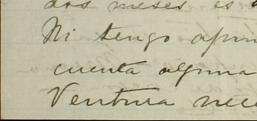 dos meses es
Ni tengo apun
cuenta alguna
Ventura nece